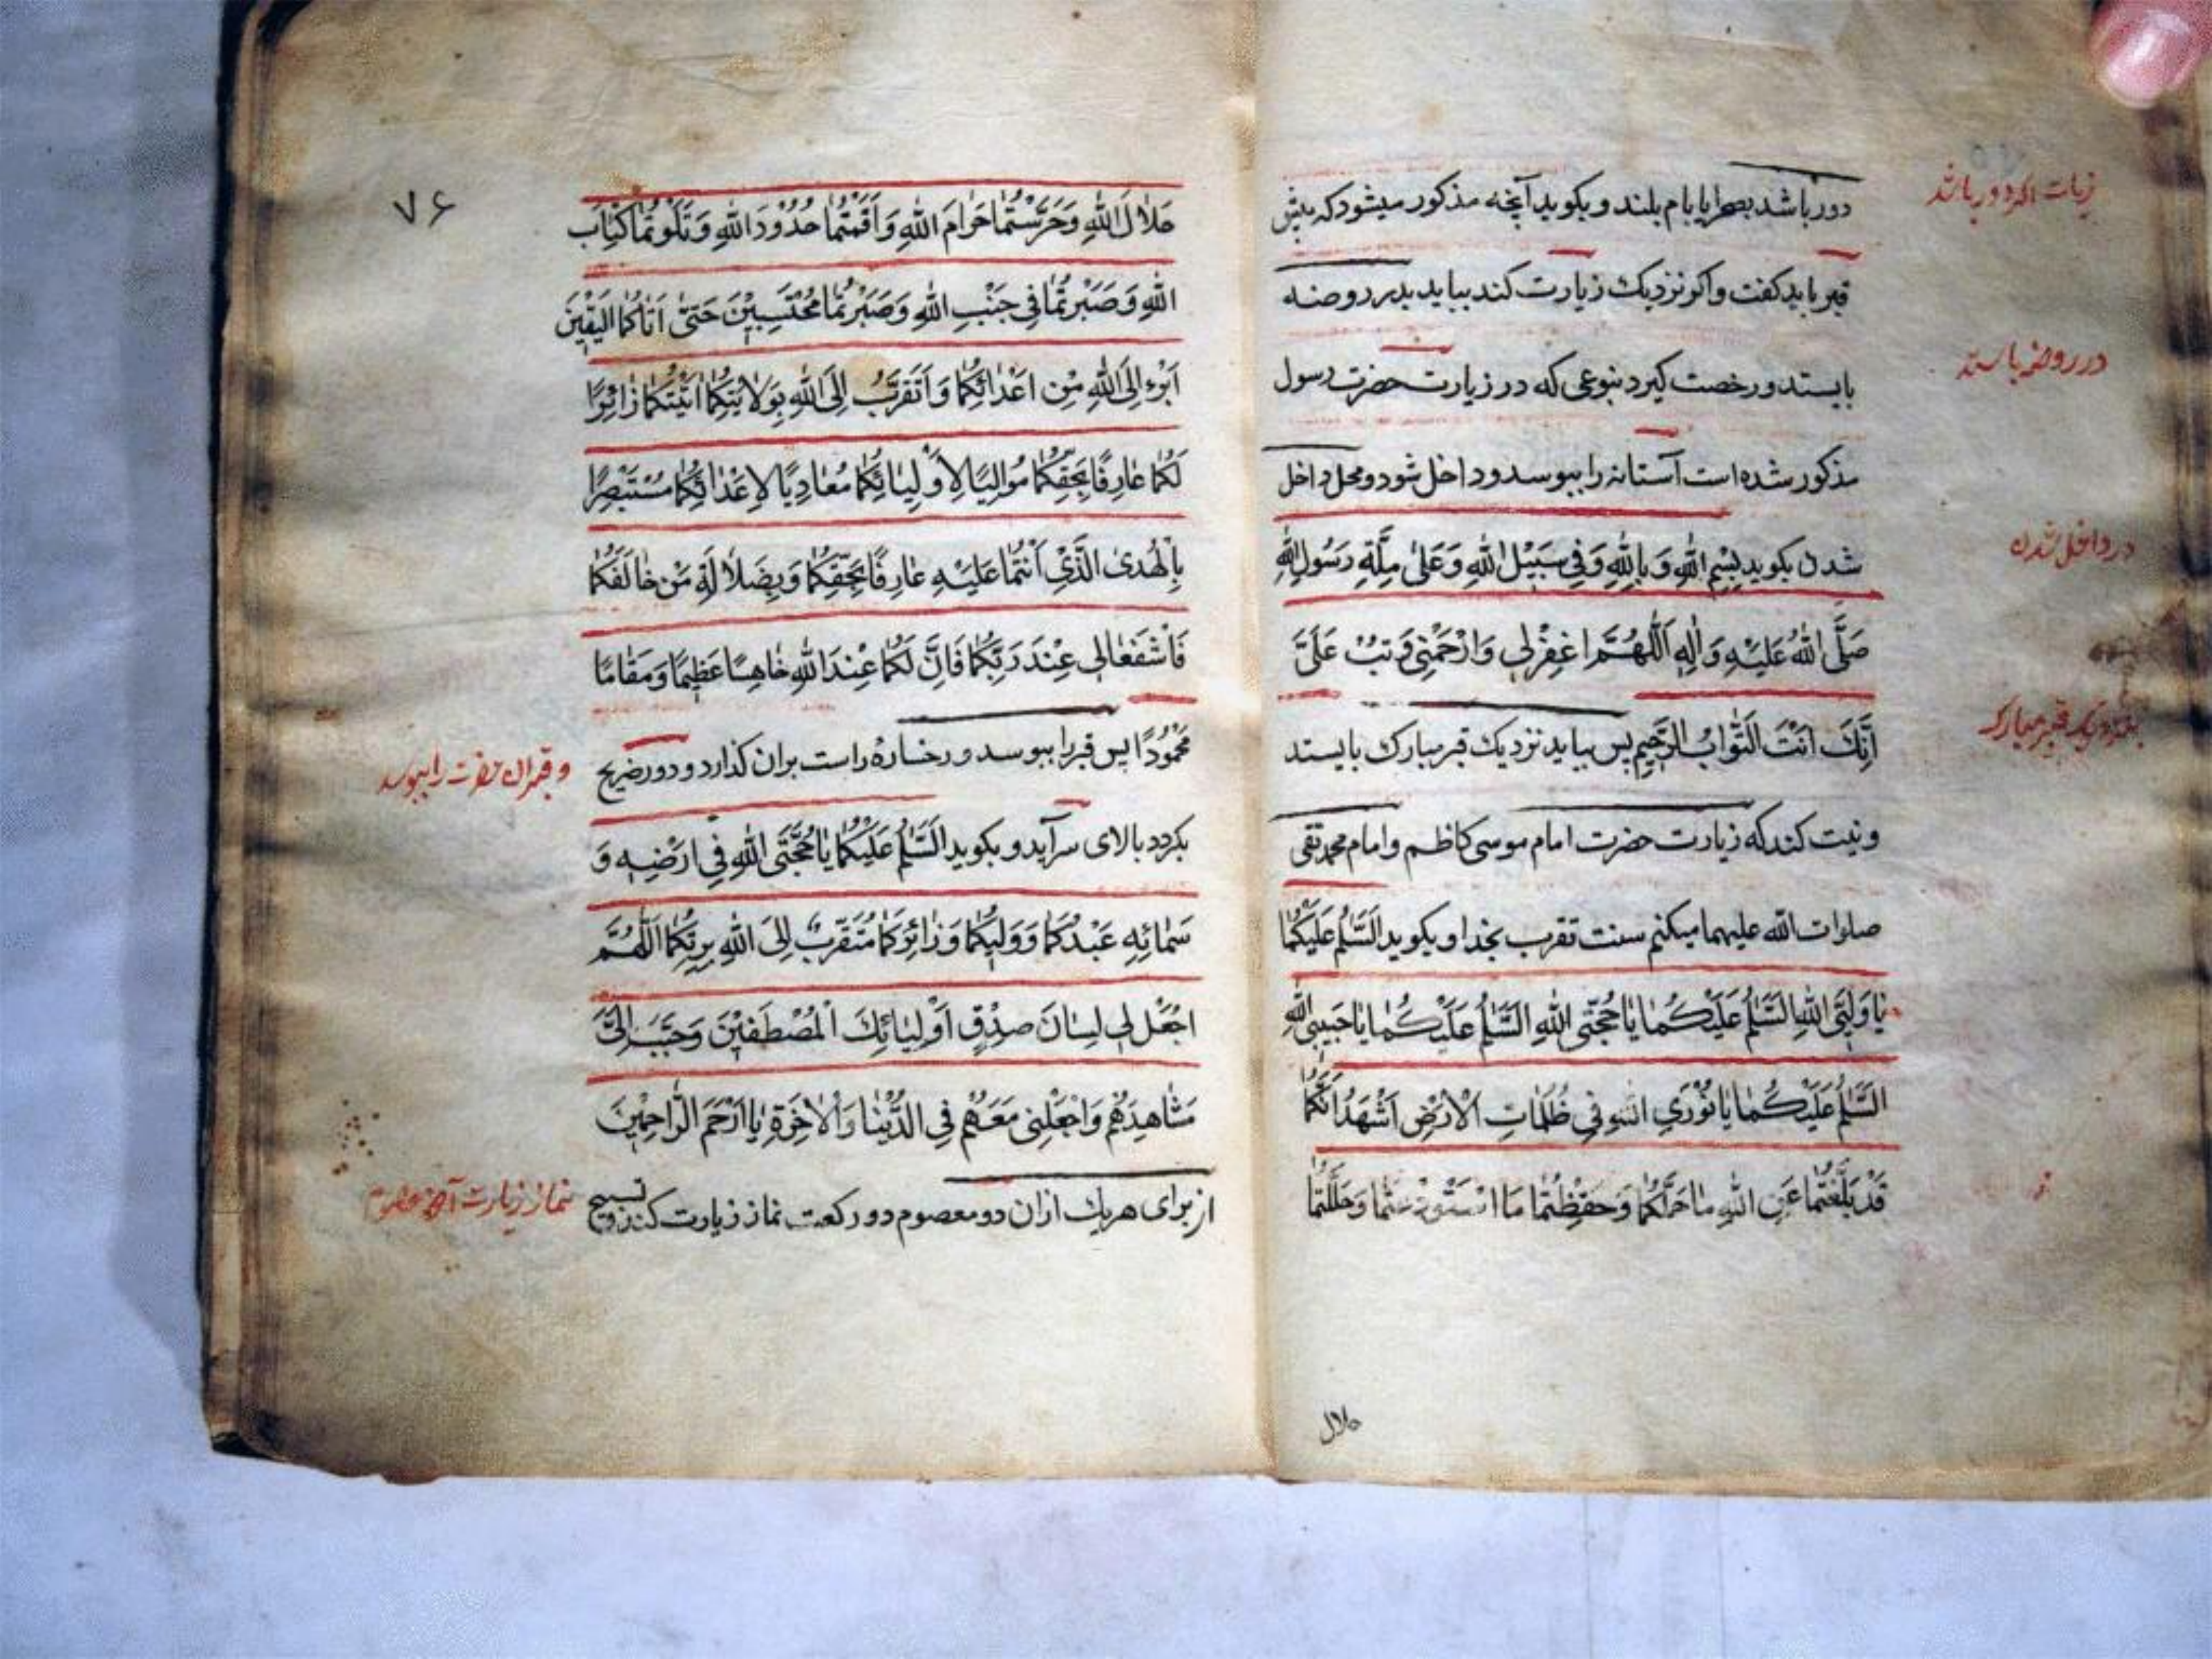 دور باشد بصحرا یا بام بلند و بکوید آنچه مذکور میشود که پیش
زیارت اگر دور باشد
قبر باید کفت و اکر نزدیک زیارت کند بیاید بدر روضه
در روضه باستد
بایستد و رخصت کیرد بنوعی که در زیارت حضرت رسول
مذکور شده است آستانه را ببوسد و داخل شود و محل داخل
در داخل شدن
شدن بکوید بِسْمِ اللّٰهِ وَ بِاللّٰهِ وَفِی سَبِیْلِ اللّٰهِ وَعَلٰی مِلَّةِ رَسُولِ اللّٰهِ
صَلَّی اللّٰهُ عَلَیْهِ وَ اٰلِهِ اَللّٰهُمَّ اغْفِرْلِی وَارْحَمْنِی وَتُبْ عَلَیَّ
بنزدیک قبر مبارک
اِنَّكَ اَنْتَ التَّوَّابُ الرَّحِیْمِ پس بیاید نزدیک قبر مبارک بایستد
و نیت کند که زیارت حضرت امام موسی کاظم و امام محمد تقی
صلوات الله علیهما میکنم سنت تقرب بخدا و بکوید اَلسَّلٰمُ عَلَیْکُمٰا
یٰا وَلِیَّیِ اللّٰهِ اَلسَّلٰمُ عَلَیْکُمٰا یٰا حُجَّتَیِ اللّٰهِ اَلسَّلٰمُ عَلَیْکُمٰا یٰا حَبِیبَیِ اللّٰهِ
اَلسَّلٰمُ عَلَیْکُمٰا یٰا نُوْرَیِ اللّٰهِ فِی ظُلُمٰاتِ الْاَرْضِ اَشْهَدُ اَنَّکُمٰا
قَدْ بَلَّغْتُمٰا عَنِ اللّٰهِ مٰا حَمَّلَکُمٰا وَحَفِظْتُمٰا مَا اسْتُوْدِعْتُمٰا وَحَلَّلْتُمٰا
حلال
۷۶
حَلَالَ اللّٰهِ وَحَرَّمْتُمٰا حَرٰامَ اللّٰهِ وَاَقَمْتُمٰا حُدُوْدَ اللّٰهِ وَتَلَوْتُمٰا کِتٰابَ
اللّٰهِ وَصَبَرْتُمٰا فِی جَنْبِ اللّٰهِ وَصَبَرْتُمٰا مُحْتَسِبِیْنَ حَتّٰی اَتٰاکُمَا الْیَقِیْنَ
اَبْرَءُ اِلَی اللّٰهِ مِنْ اَعْدٰائِکُمٰا وَاَتَقَرَّبُ اِلَی اللّٰهِ بِوَلٰایَتِکُمٰا اَتَیْتُکُمٰا زٰائِرًا
لَکُمٰا عٰارِفًا بِحَقِّکُمٰا مُوٰالِیًا لِاَوْلِیٰائِکُمٰا مُعٰادِیًا لِاَعْدٰائِکُمٰا مُسْتَبْصِرًا
بِالْهُدَی الَّذِیْ اَنْتُمٰا عَلَیْهِ عٰارِفًا بِحَقِّکُمٰا وَبِضَلٰالَةِ مَنْ خٰالَفَکُمٰا
فَاشْفَعٰا لِی عِنْدَ رَبِّکُمٰا فَاِنَّ لَکُمٰا عِنْدَ اللّٰهِ جٰاهًا عَظِیمًا وَمَقٰامًا
مَحْمُوْدًا پس قبر را ببوسد و رخساره راست بران کذارد و دور ضریح
و قبر ان حضرت را ببوسد
بکردد بالای سر آید و بکوید اَلسَّلٰمُ عَلَیْکُمٰا یٰا حُجَّتَیِ اللّٰهِ فِی اَرْضِهِ وَ
سَمٰائِهِ عَبْدُکُمٰا وَوَلِیُّکُمٰا وَزٰائِرُکُمٰا مُتَقَرِّبٌ اِلَی اللّٰهِ بِزِیٰارَتِکُمٰا اَللّٰهُمَّ
اجْعَلْ لِی لِسٰانَ صِدْقٍ اَوْلِیٰائِكَ الْمُصْطَفَیْنَ وَحَبِّبْ اِلَیَّ
مَشٰاهِدَهُمْ وَاجْعَلْنِی مَعَهُمْ فِی الدُّنْیٰا وَالْاٰخِرَةِ یٰا اَرْحَمَ الرّٰاحِمِیْنَ
از برای هر یك ازان دو معصوم دو رکعت نماز زیارت کند و تسبیح
نماز زیارت آن